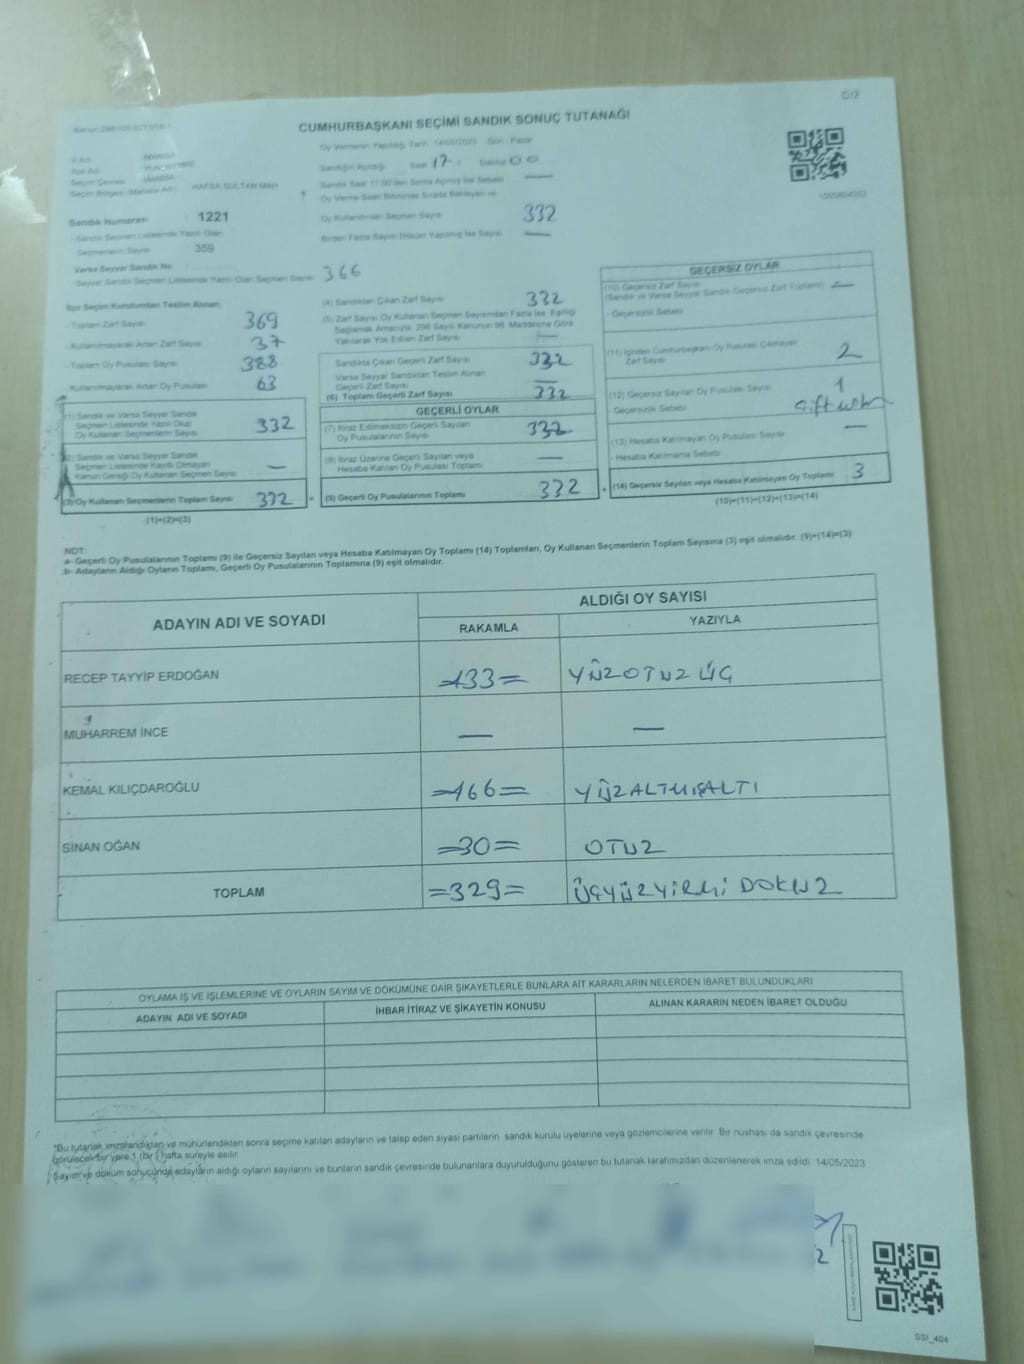 C/2
CUMHURBAŞKANI SEÇİMİ SANDIK SONUÇ TUTANAĞI
Oy Vermenin Yapıldığı Tarih: 14/05/2023 Gün: Pazar
Sandığın Açıldığı Saat 17 : Dakika 00
İl Adı : MANİSA
İlçe Adı
Seçim Çevresi : MANİSA
Seçim Bölgesi (Mahalle Adı) : HAFSA SULTAN MAH
Oy Verme Saati Bitiminde Sırada Bekleyen ve
Oy Kullandırılan Seçmen Sayısı 332
Birden Fazla Sayım Döküm Yapılmış İse Sayısı —
Sandık Numarası : 1221
- Sandık Seçmen Listesinde Yazılı Olan
Seçmenlerin Sayısı : 359
Varsa Seyyar Sandık No
- Seyyar Sandık Seçmen Listesinde Yazılı Olan Seçmen Sayısı 366
İlçe Seçim Kurulundan Teslim Alınan;
- Toplam Zarf Sayısı 369
- Kullanılmayarak Artan Zarf Sayısı 37
- Toplam Oy Pusulası Sayısı 388
- Kullanılmayarak Artan Oy Pusulası 63
(1) Sandık ve Varsa Seyyar Sandık
Seçmen Listesinde Yazılı Olup
Oy Kullanan Seçmenlerin Sayısı 332
(2) Sandık ve Varsa Seyyar Sandık
Seçmen Listesinde Kayıtlı Olmayan
Kanun Gereği Oy Kullanan Seçmen Sayısı —
(3) Oy Kullanan Seçmenlerin Toplam Sayısı 332
(1)+(2)=(3)
(4) Sandıktan Çıkan Zarf Sayısı 332
(5) Zarf Sayısı Oy Kullanan Seçmen Sayısından Fazla İse, Eşitliği
Sağlamak Amacıyla 298 Sayılı Kanunun 98. Maddesine Göre
Yakılarak Yok Edilen Zarf Sayısı —
Sandıkta Çıkan Geçerli Zarf Sayısı 332
Varsa Seyyar Sandıktan Teslim Alınan
Geçerli Zarf Sayısı —
(6) Toplam Geçerli Zarf Sayısı 332
GEÇERLİ OYLAR
(7) İtiraz Edilmeksizin Geçerli Sayılan
Oy Pusulalarının Sayısı 332
(8) İtiraz Üzerine Geçerli Sayılan veya
Hesaba Katılan Oy Pusulası Toplamı —
= (9) Geçerli Oy Pusulalarının Toplamı 332
GEÇERSİZ OYLAR
(10) Geçersiz Zarf Sayısı
(Sandık ve Varsa Seyyar Sandık Geçersiz Zarf Toplamı) —
- Geçersizlik Sebebi
(11) İçinden Cumhurbaşkanı Oy Pusulası Çıkmayan
Zarf Sayısı 2
(12) Geçersiz Sayılan Oy Pusulası Sayısı 1
- Geçersizlik Sebebi
(13) Hesaba Katılmayan Oy Pusulası Sayısı —
- Hesaba Katılmama Sebebi
+ (14) Geçersiz Sayılan veya Hesaba Katılmayan Oy Toplamı 3
(10)+(11)+(12)+(13)=(14)
NOT:
a- Geçerli Oy Pusulalarının Toplamı (9) ile Geçersiz Sayılan veya Hesaba Katılmayan Oy Toplamı (14) Toplamları, Oy Kullanan Seçmenlerin Toplam Sayısına (3) eşit olmalıdır. (9)+(14)=(3)
b- Adayların Aldığı Oyların Toplamı, Geçerli Oy Pusulalarının Toplamına (9) eşit olmalıdır.
ADAYIN ADI VE SOYADI ALDIĞI OY SAYISI
RAKAMLA YAZIYLA
RECEP TAYYİP ERDOĞAN =133= YÜZOTUZ ÜÇ
MUHARREM İNCE — —
KEMAL KILIÇDAROĞLU =166= YÜZALTMIŞALTI
SİNAN OĞAN =30= OTUZ
TOPLAM =329= ÜÇYÜZYİRMİ DOKUZ
OYLAMA İŞ VE İŞLEMLERİNE VE OYLARIN SAYIM VE DÖKÜMÜNE DAİR ŞİKAYETLERLE BUNLARA AİT KARARLARIN NELERDEN İBARET BULUNDUKLARI
ADAYIN ADI VE SOYADI İHBAR İTİRAZ VE ŞİKAYETİN KONUSU ALINAN KARARIN NEDEN İBARET OLDUĞU
*Bu tutanak imzalandıktan ve mühürlendikten sonra seçime katılan adayların ve talep eden siyasi partilerin sandık kurulu üyelerine veya gözlemcilerine verilir. Bir nüshası da sandık çevresinde
görülecek bir yere 1 (bir) hafta süreyle asılır.
Sayım ve döküm sonucunda adayların aldığı oyların sayılarını ve bunların sandık çevresinde bulunanlara duyurulduğunu gösteren bu tutanak tarafımızdan düzenlenerek imza edildi. 14/05/2023
SSI_404